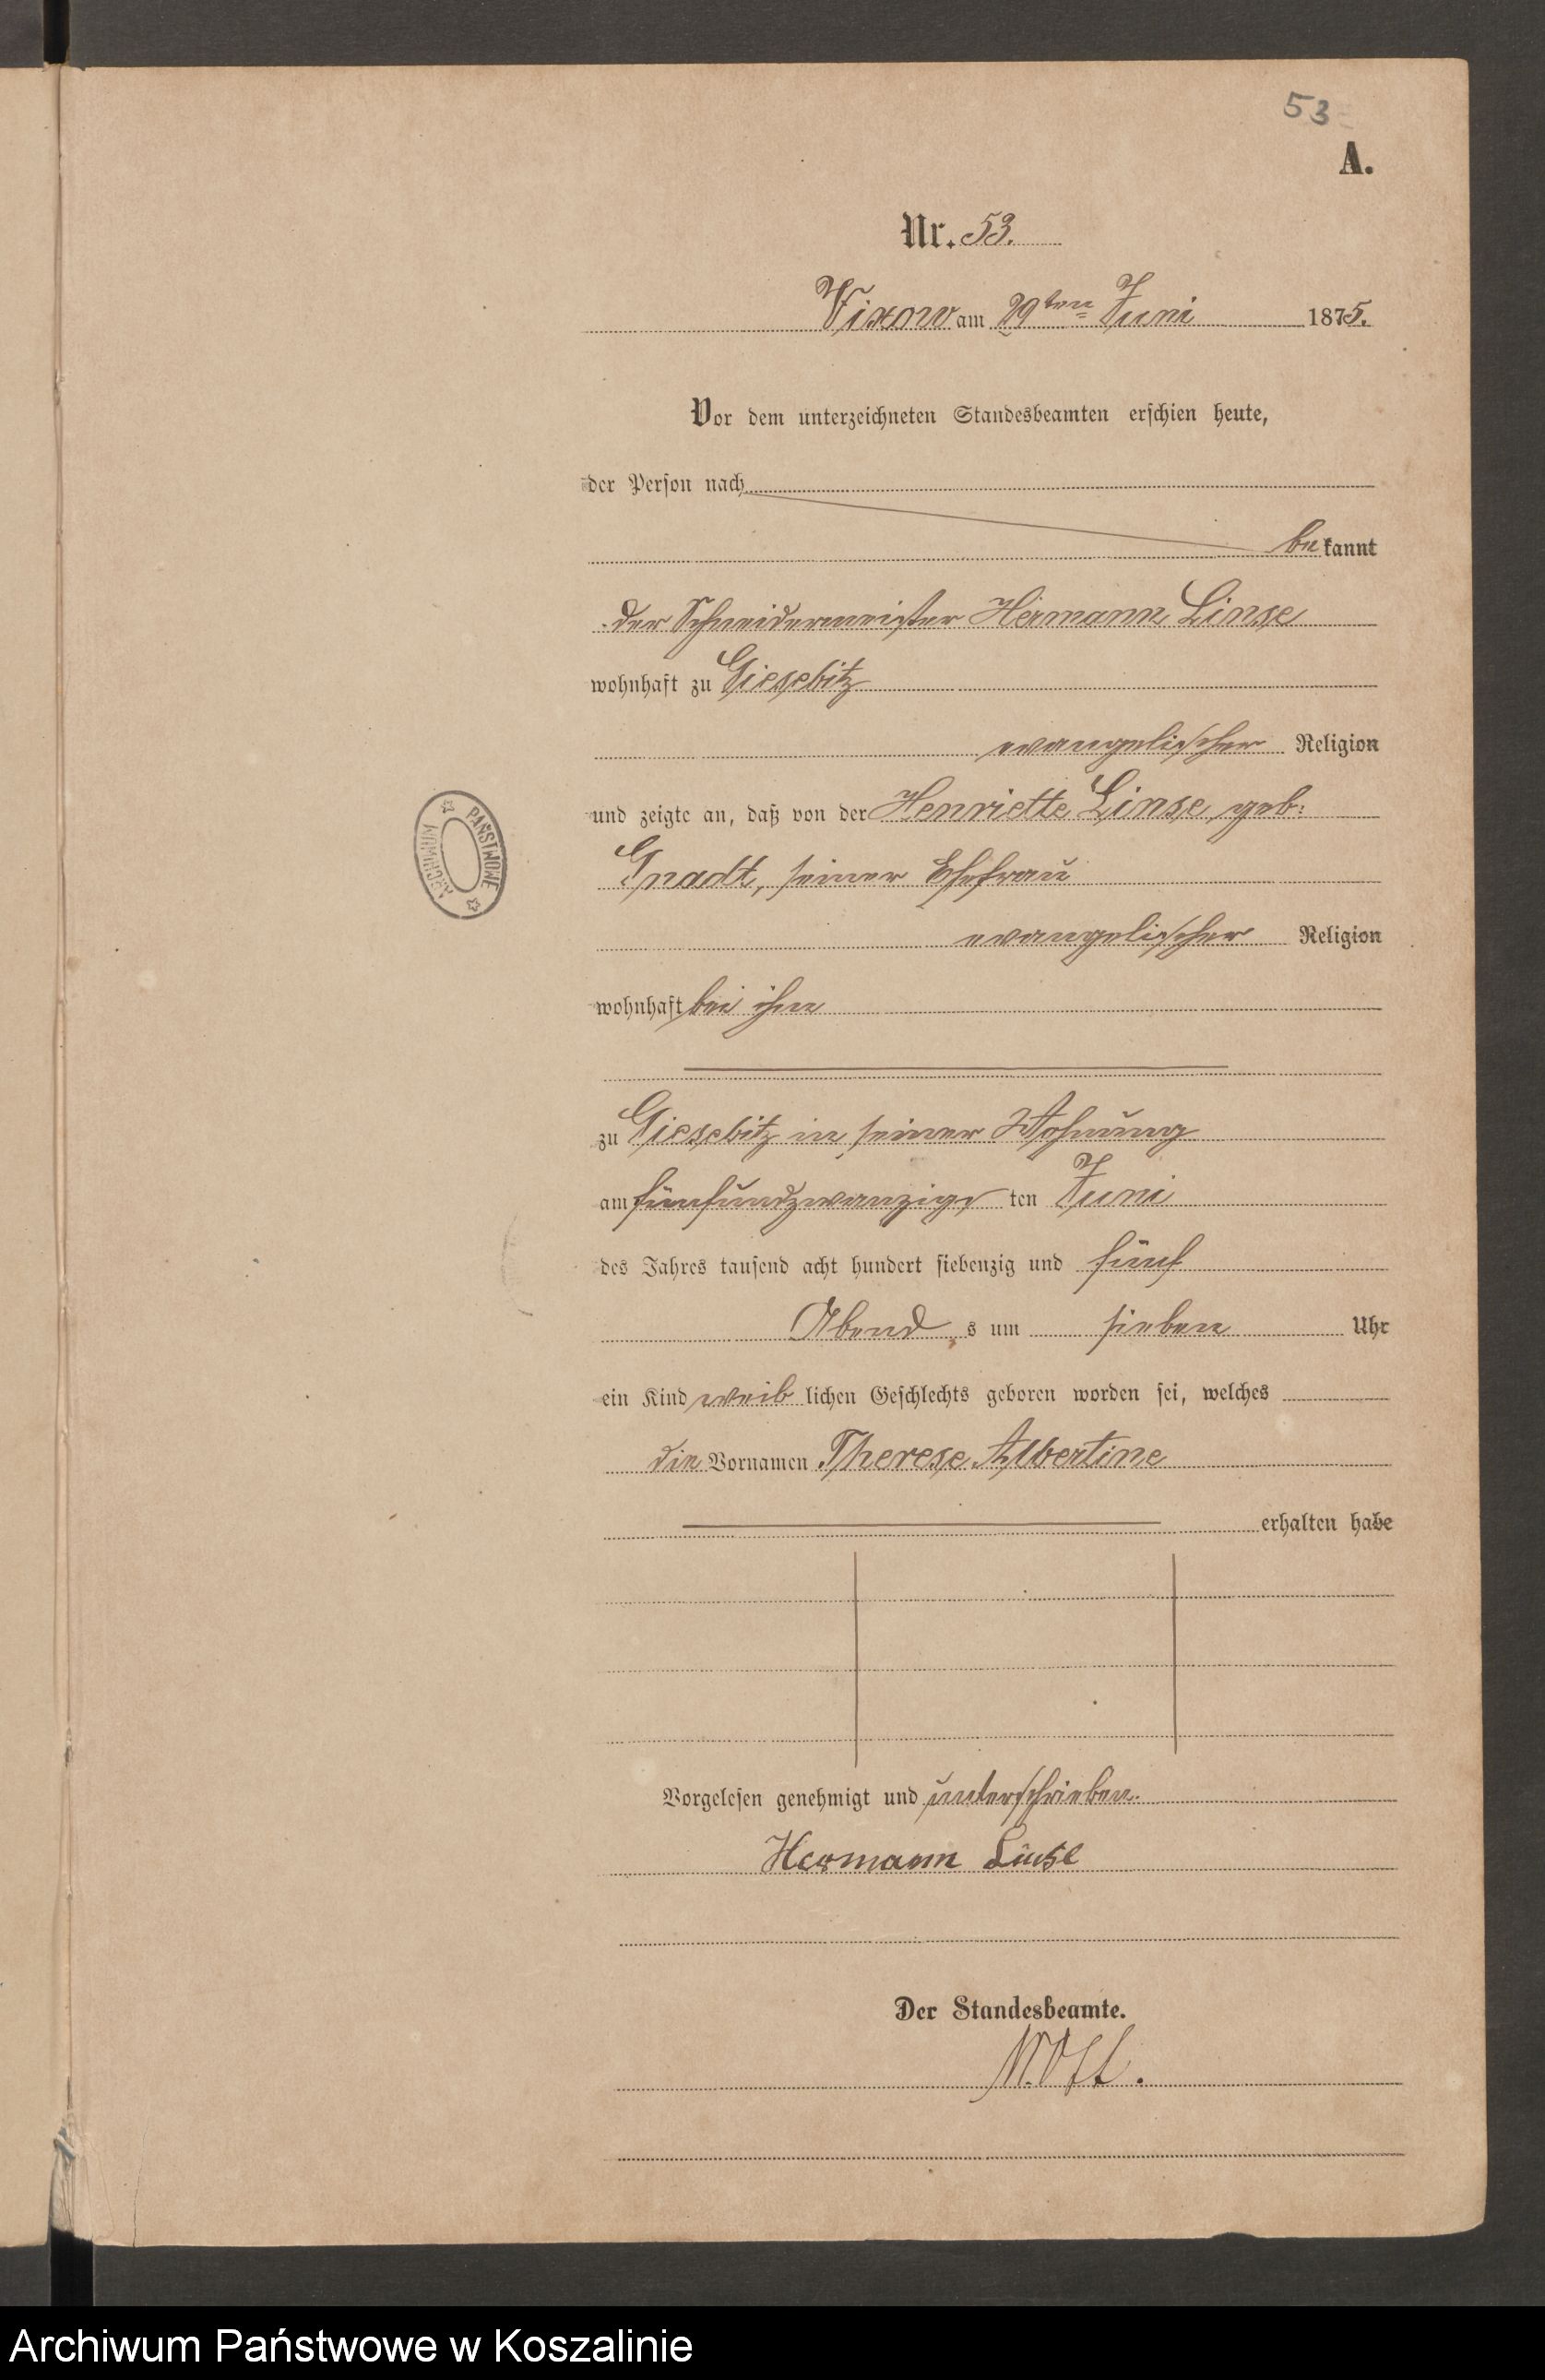 53
A.
Nr. 53.
Vixow am 29ten Juni 1875.
Vor dem unterzeichneten Standesbeamten erschien heute,
der Person nach
bekannt
der Schneidermeister Hermann Linse
wohnhaft zu Giesebitz
evangelischer Religion
und zeigte an, daß von der Henriette Linse geb:
Gnadt, seiner Ehefrau
evangelischer Religion
wohnhaft bei ihm
zu Giesebitz in seiner Wohnung
am fünfundzwanzigsten Juni
des Jahres tausend acht hundert siebenzig und fünf
Abends um sieben Uhr
ein Kind weiblichen Geschlechts geboren worden sei, welches
die Vornamen Therese Albertine
erhalten habe
Vorgelesen genehmigt und unterschrieben.
Hermann Linse
Der Standesbeamte.
ARCHIWUM PAŃSTWOWE
Archiwum Państwowe w Koszalinie